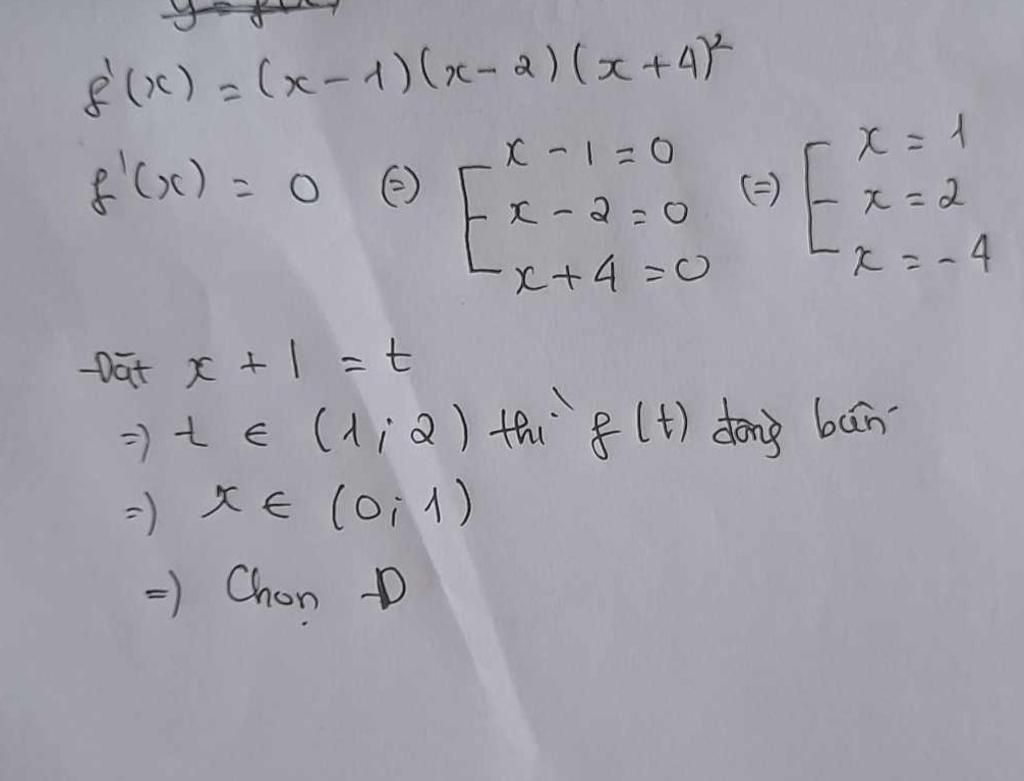 f'(x) = (x - 1)(x - 2)(x + 4)²
f'(x) = 0 (=) [ x - 1 = 0 (=) [ x = 1
x - 2 = 0 x = 2
x + 4 = 0 x = - 4
Đặt x + 1 = t
=) t ∈ (1; 2) thì f(t) đồng biến
=) x ∈ (0; 1)
=) Chọn D